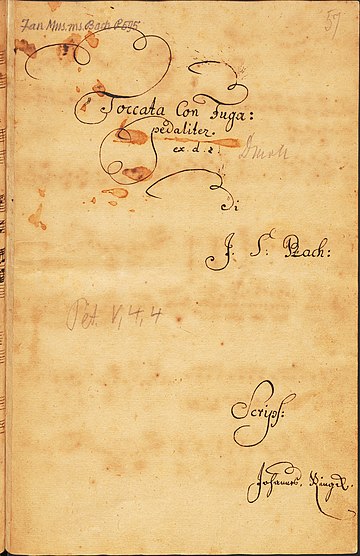 Mus. ms. Bach P 595
57
Toccata Con Fuga:
pedaliter.
ex. d. #.
Dmoll
di
J. S. Bach:
Pet. V, 4, 4
Scrips:
Johannes. Ringck.